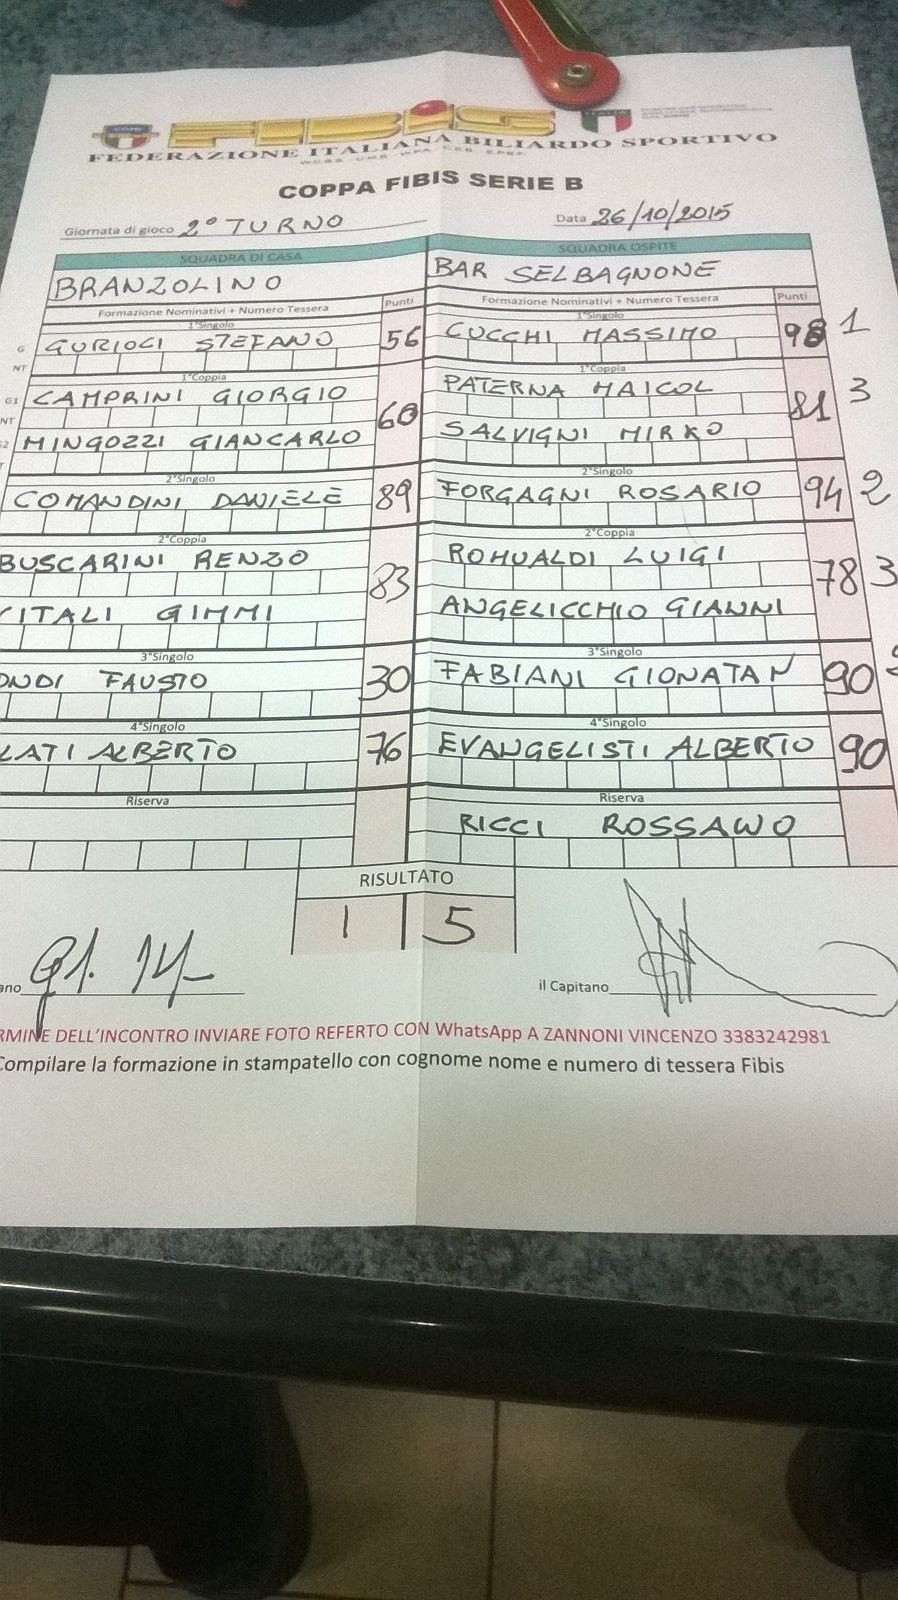 FIBiS
FEDERAZIONE ITALIANA BILIARDO SPORTIVO
COPPA FIBIS SERIE B
Giornata di gioco 2° TURNO Data 26/10/2015
SQUADRA DI CASA SQUADRA OSPITE
BRANZOLINO BAR SELBAGNONE
Formazione Nominativi + Numero Tessera Punti Formazione Nominativi + Numero Tessera Punti
1°Singolo 1°Singolo
G GURIOCI STEFANO 56 CUCCHI MASSIMO 98 1
NT
1°Coppia 1°Coppia
G1 CAMPRINI GIORGIO 60 PATERNA MAICOL 81 3
NT
2 MINGOZZI GIANCARLO SALVIGNI MIRKO
2°Singolo 2°Singolo
COMANDINI DANIELE 89 FORGAGNI ROSARIO 94 2
2°Coppia 2°Coppia
BUSCARINI RENZO 83 ROMUALDI LUIGI 78 3
VITALI GIMMI ANGELICCHIO GIANNI
3°Singolo 3°Singolo
ONDI FAUSTO 30 FABIANI GIONATAN 90
4°Singolo 4°Singolo
LATI ALBERTO 76 EVANGELISTI ALBERTO 90
Riserva Riserva
RICCI ROSSANO
RISULTATO
1 5
ano il Capitano
RMINE DELL'INCONTRO INVIARE FOTO REFERTO CON WhatsApp A ZANNONI VINCENZO 3383242981
Compilare la formazione in stampatello con cognome nome e numero di tessera Fibis